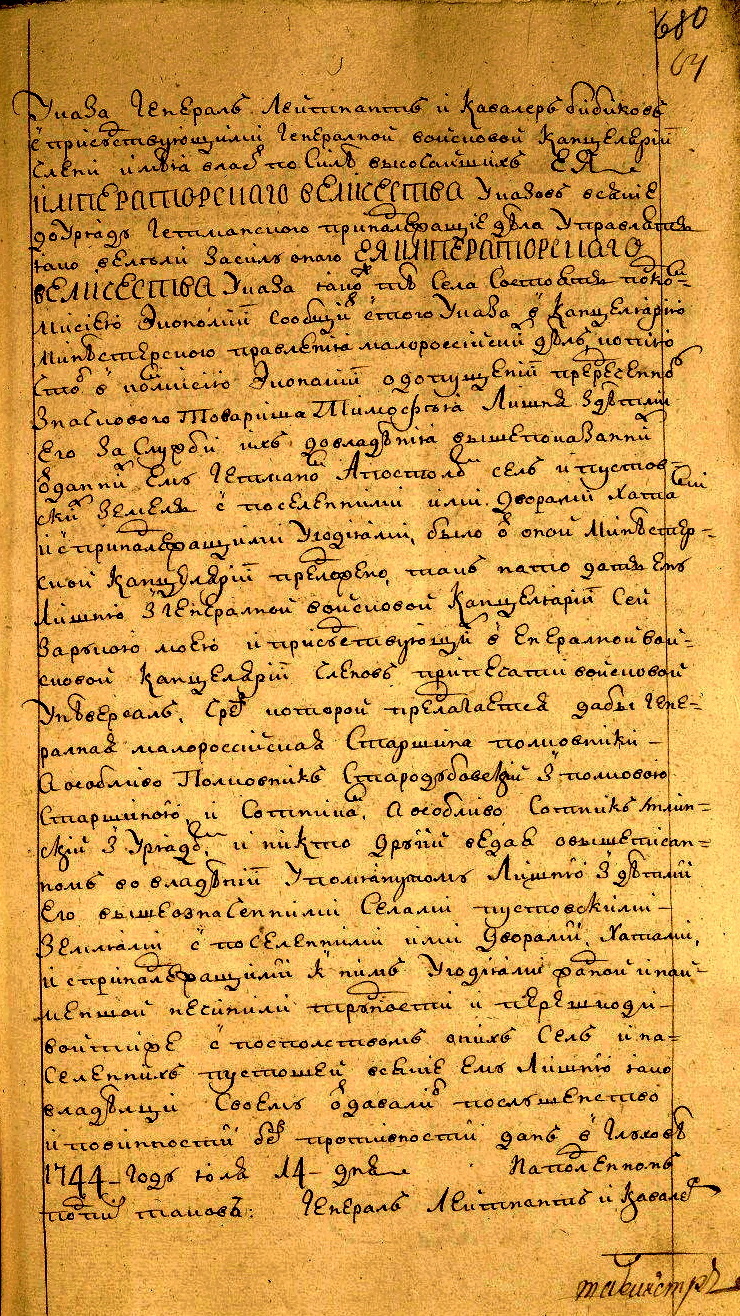 680
64
Указа Генералъ Лейтнантъ и Кавалеръ Бибиковъ
с присутствующими Генералной войсковой Канцеляріи
члени имѣя власть по силѣ высочайшихъ ЕЯ
ИМПЕРАТОРСКАГО ВЕЛИЧЕСТВА Указовъ всякіе
до Уряду Гетманского приналежащіе дѣла Управлять
яко велѣли засилъ оного ЕЯ ИМПЕРАТОРСКАГО
ВЕЛИЧЕСТВА Указа яко тѣ села состоятъ по ком-
мисіею Экономіи сообщи с того Указа в Канцелярію
министерского правленія малороссійски дѣлъ, котого
что в комисію Экономіи о допущеніи преречонно
значкового товариша Тимофѣя Лишня з дѣтми
его за служби ихъ до владѣнія вышепоказанни
одданни емъ гетманом Апостолом селъ и пустов-
ски земель с поселенними ими дворами хатами
и с приналежащими угодіями, было в оной министер-
ской канцеляріи предложено, такъ нато дать емъ
Лишню з Генералной войсковой Канцеляріи сей
за рукою моею и присутствующи в Енералной вой-
сковой канцеляріи членовъ притесати войсковой
Унѣверсалъ, чрез которой предлагается дабы гене-
ралная малороссійская старшина полковники
а особливо Полковникъ Стародубовскій з полковою
старшиною и сотники, а особливо сотникъ Мглин-
скій з урядом, и никто другій ведая о вышеписан-
номъ во владѣніи Упомянутомъ Лишню з дѣтми
его вышеозначенними селами пустовскими
землями с поселенними ими дворами, хатами,
и с приналежащими к нимъ угодіями жадной и най-
меншой нечинили трудности и перешкоди
войтиже с посполствомъ онихъ селъ и на-
селеннихъ пустошей всякіе емъ Лишню яко
владѣлци своемъ оддавали послушенство
и повинности без противности данъ в Глуховѣ
1744 году юля 14 дня На подленномъ
подпи таковъ: Генералъ Лейтнантъ и Кавалер